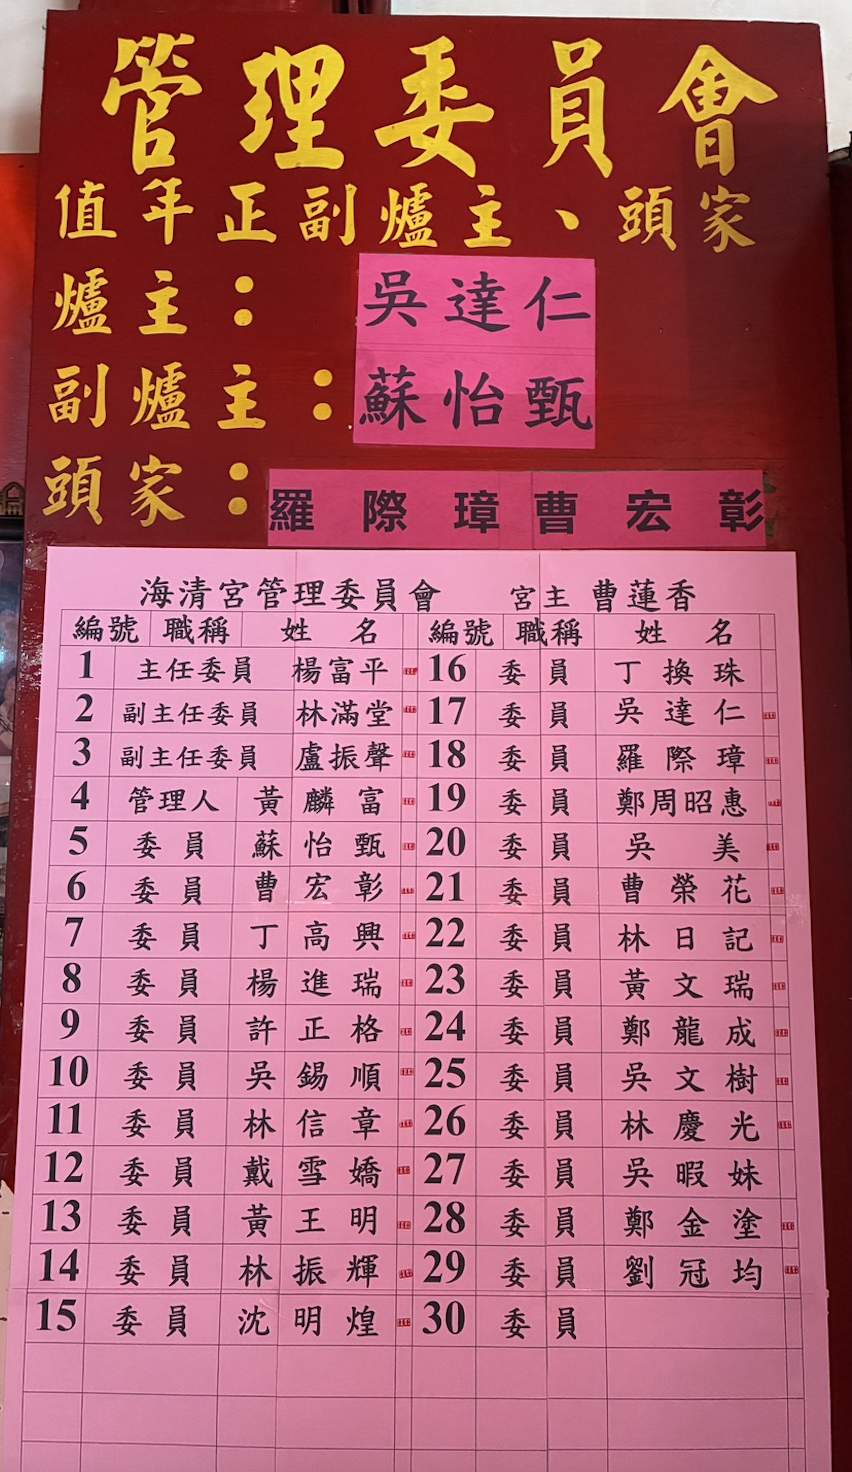 管理委員會
值年正副爐主、頭家
爐主：吳達仁
副爐主：蘇怡甄
頭家：羅際璋 曹宏彰
海清宮管理委員會 宮主 曹蓮香
編號 職稱 姓名 編號 職稱 姓名
1 主任委員 楊富平 16 委員 丁換珠
2 副主任委員 林滿堂 17 委員 吳達仁
3 副主任委員 盧振聲 18 委員 羅際璋
4 管理人 黃麟富 19 委員 鄭周昭惠
5 委員 蘇怡甄 20 委員 吳美
6 委員 曹宏彰 21 委員 曹榮花
7 委員 丁高興 22 委員 林日記
8 委員 楊進瑞 23 委員 黃文瑞
9 委員 許正格 24 委員 鄭龍成
10 委員 吳錫順 25 委員 吳文樹
11 委員 林信章 26 委員 林慶光
12 委員 戴雪嬌 27 委員 吳暇妹
13 委員 黃王明 28 委員 鄭金塗
14 委員 林振輝 29 委員 劉冠均
15 委員 沈明煌 30 委員